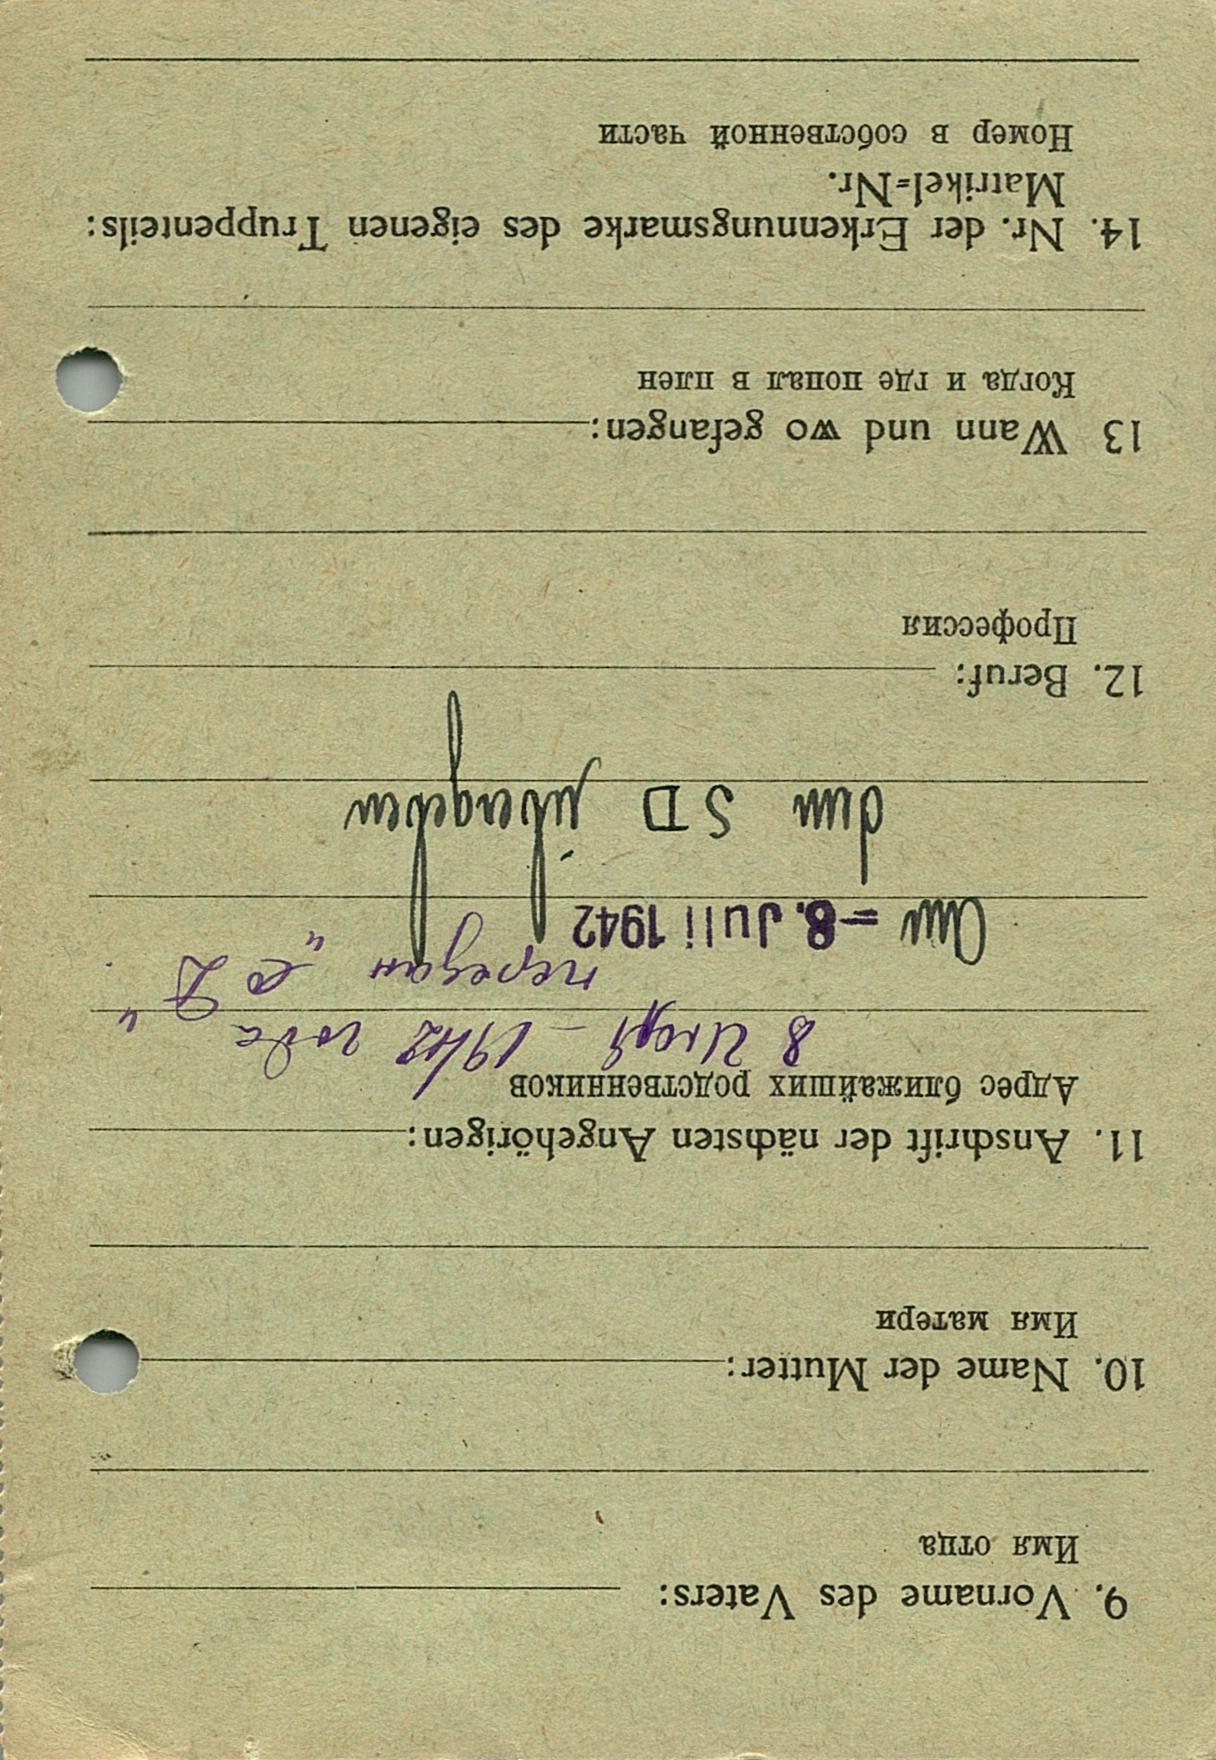 9. Vorname des Vaters:
Имя отца
10. Name der Mutter:
Имя матери
11. Anschrift der nächsten Angehörigen:
Адрес ближайших родственников
8 Июля - 1942 года
передан „СД"
Am - 8. Juli 1942
dem SD übergeben
12. Beruf:
Профессия
13 Wann und wo gefangen:
Когда и где попал в плен
14. Nr. der Erkennungsmarke des eigenen Truppenteils:
Matrikel=Nr.
Номер в собственной части